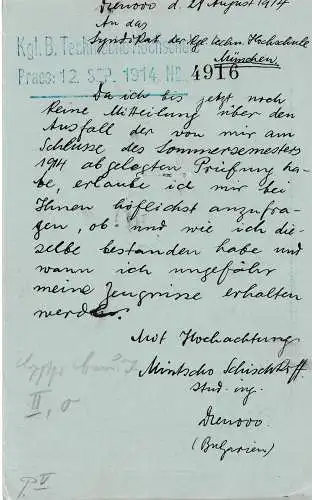 Drenovo d. 21 August 1914
An das
Syndikat der Kgl. techn. Hochschule
München.
Kgl. B. Technische Hochschule
Praes: 12. SEP. 1914. No 4916
Da ich bis jetzt noch
keine Mitteilung über den
Ausfall der von mir am
Schlusse des Sommersemesters
1914 abgelegten Prüfung ha-
be, erlaube ich mir bei
Ihnen höflichst anzufra-
gen, ob und wie ich die-
selbe bestanden habe und
wann ich ungefähr
meine Zeugnisse erhalten
werde.
Mit Hochachtung
Mintscho Schischkoff
stud. ing.
Drenovo
(Bulgarien)
II, 0